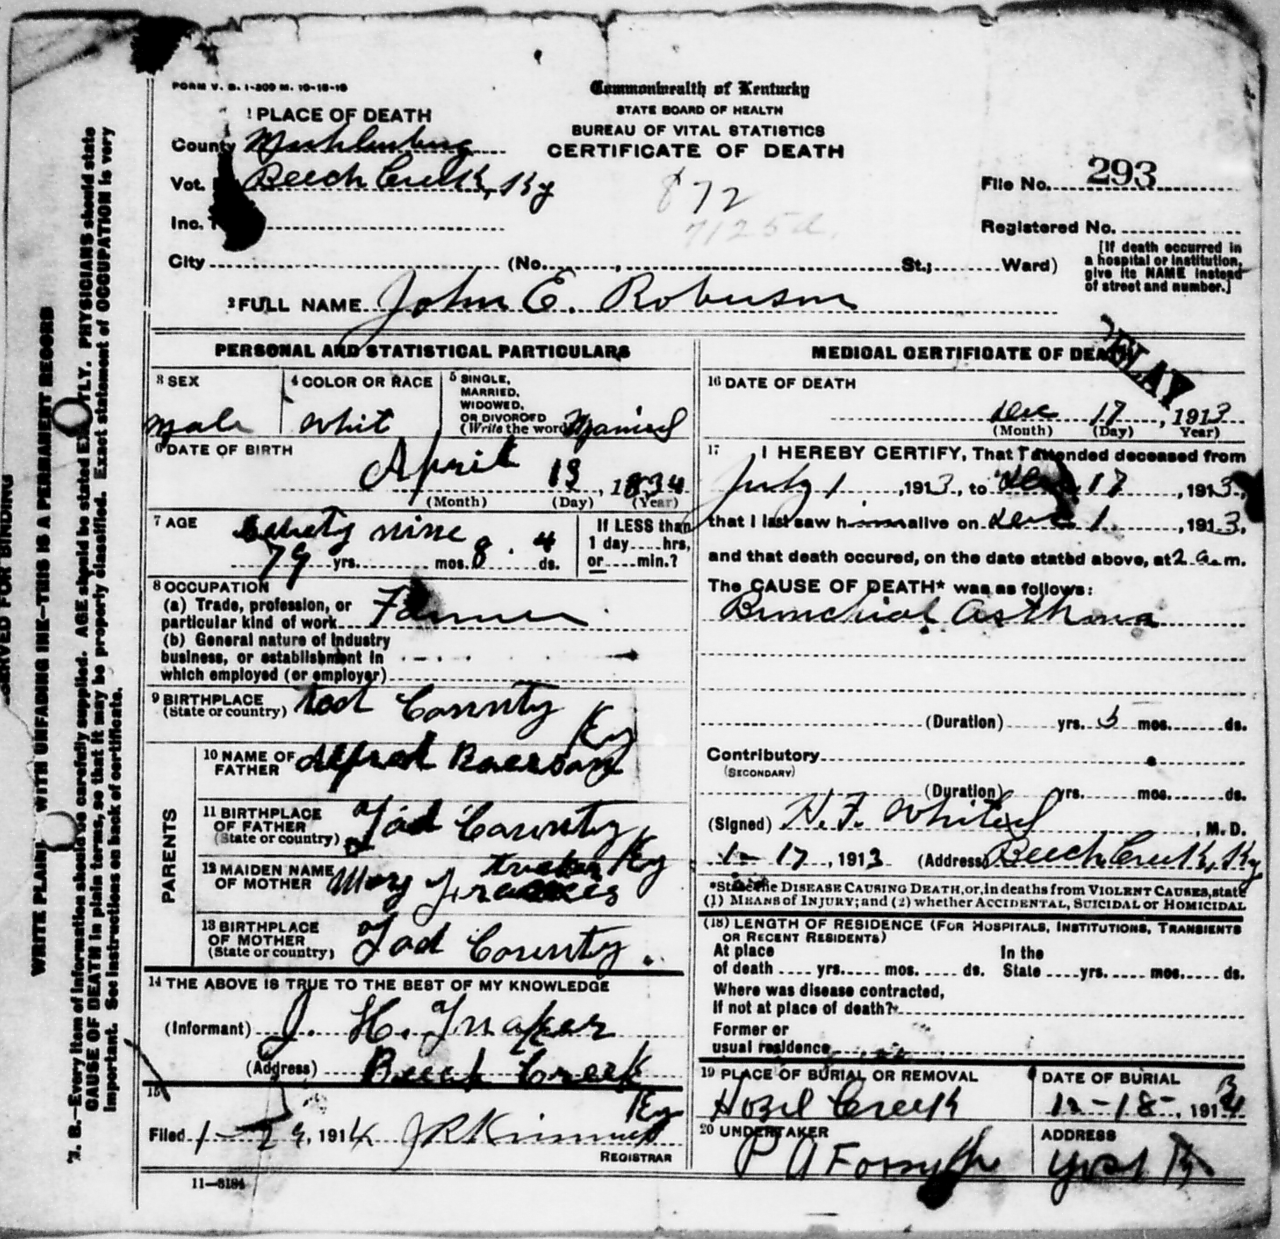 FORM V. S. 1-200 M. 10-18-16
Commonwealth of Kentucky
STATE BOARD OF HEALTH
BUREAU OF VITAL STATISTICS
CERTIFICATE OF DEATH
1 PLACE OF DEATH
County Muhlenburg
Vot. Beech Creek, Ky
Inc.
872
7125d
File No. 293
Registered No.
City (No. , St.; Ward)
[If death occurred in
a hospital or institution,
give its NAME instead
of street and number.]
2 FULL NAME John E. Roberson
PERSONAL AND STATISTICAL PARTICULARS
3 SEX
male
4 COLOR OR RACE
Whit
5 SINGLE,
MARRIED,
WIDOWED,
OR DIVORCED
(Write the word) Married
6 DATE OF BIRTH
April 13, 1834
(Month) (Day) (Year)
7 AGE
nine
79 yrs. mos. 8 . 4 ds.
If LESS than
1 day.....hrs,
or.....min.?
8 OCCUPATION
(a) Trade, profession, or
particular kind of work Farmer
(b) General nature of industry
business, or establishment in
which employed (or employer)
9 BIRTHPLACE
(State or country) Tod County
Ky
PARENTS
10 NAME OF
FATHER Alfred
11 BIRTHPLACE
OF FATHER
(State or country) Tod County
Ky
12 MAIDEN NAME
OF MOTHER Mary
13 BIRTHPLACE
OF MOTHER
(State or country) Tod County.
14 THE ABOVE IS TRUE TO THE BEST OF MY KNOWLEDGE
(Informant) J. H.
(Address) Beech Creek
Ky
15
Filed 1-29, 1914
REGISTRAR
11-3184
MEDICAL CERTIFICATE OF DEATH
DELAY
16 DATE OF DEATH
Dec 17, 1913
(Month) (Day) Year)
17 I HEREBY CERTIFY, That I attended deceased from
July 1, 1913, to Dec 17, 1913,
that I last saw him alive on Dec 1, 1913,
and that death occured, on the date stated above, at 2 a.m.
The CAUSE OF DEATH* was as follows:
Bronchial asthma
(Duration) yrs. 5 mos. ds.
Contributory
(SECONDARY)
(Duration) yrs. mos. ds.
(Signed) H. F. , M. D.
17, 1913 (Address) Beech Creek, Ky
*State the DISEASE CAUSING DEATH, or, in deaths from VIOLENT CAUSES, state
(1) MEANS of INJURY; and (2) whether ACCIDENTAL, SUICIDAL or HOMICIDAL
(18) LENGTH OF RESIDENCE (FOR HOSPITALS, INSTITUTIONS, TRANSIENTS
OR RECENT RESIDENTS)
At place In the
of death .... yrs. .... mos. .... ds. State .... yrs. .... mos. .... ds.
Where was disease contracted,
If not at place of death?
Former or
usual residence
19 PLACE OF BURIAL OR REMOVAL
Hozel Creek
DATE OF BURIAL
12-18-, 1913
20 UNDERTAKER
P A Forsythe
ADDRESS
Yost Ky
RESERVED FOR BINDING
WRITE PLAINLY WITH UNFADING INK—THIS IS A PERMANENT RECORD
N. B.—Every item of information should be carefully supplied. AGE should be stated EXACTLY. PHYSICIANS should state
CAUSE OF DEATH in plain terms, so that it may be properly classified. Exact statement of OCCUPATION is very
important. See instructions on back of certificate.